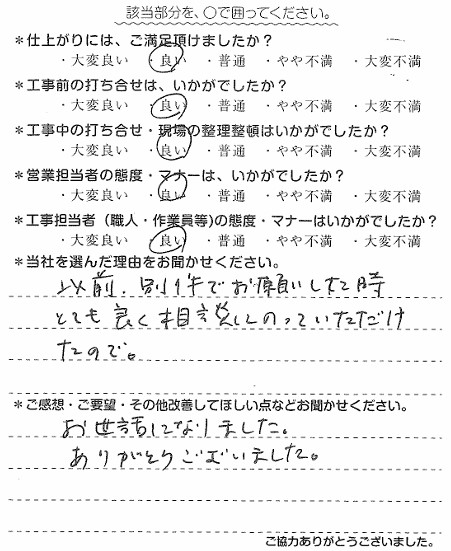 該当部分を、〇で囲ってください。
＊仕上がりには、ご満足頂けましたか？
・大変良い ・良い ・普通 ・やや不満 ・大変不満
＊工事前の打ち合せは、いかがでしたか？
・大変良い ・良い ・普通 ・やや不満 ・大変不満
＊工事中の打ち合せ・現場の整理整頓はいかがでしたか？
・大変良い ・良い ・普通 ・やや不満 ・大変不満
＊営業担当者の態度・マナーは、いかがでしたか？
・大変良い ・良い ・普通 ・やや不満 ・大変不満
＊工事担当者（職人・作業員等)の態度・マナーはいかがでしたか？
・大変良い ・良い ・普通 ・やや不満 ・大変不満
＊当社を選んだ理由をお聞かせください。
以前、別件でお願いした時
とても良く相談にのっていただけ
たので。
＊ご感想・ご要望・その他改善してほしい点などお聞かせください。
お世話になりました。
ありがとうございました。
ご協力ありがとうございました。